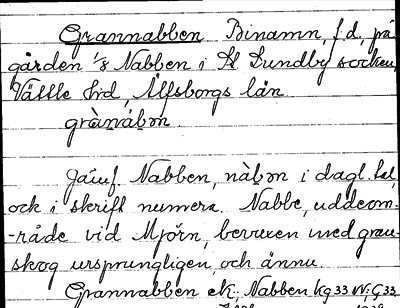 Grannabben Binamn, f.d., på
gården 1/8 Nabben i St Lundby socken,
Vättle hd, Älfsborgs län
grànàbən.
Jämf. Nabben, nàbən i dagl. tal,
ock i skrift numera. Nabbe, uddeom-
-råde vid Mjörn, bevuxen med gran-
skog ursprungligen, och ännu
Grannabben eK; Nabben kg 33 NV; G 33